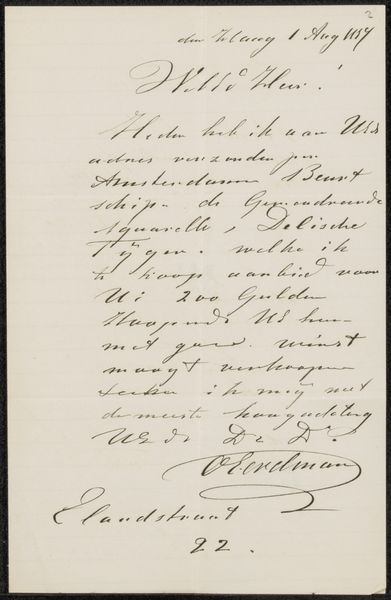 2
den Haag 1 Aug 1887
WelEd Heer!
Heden heb ik aan UEds
adres verzonden per
Amsterdammer Beurt
schip, de Geteekende
aquarelle, Delische
Tijger. welke ik
te koop aanbied voor
U: 200 Gulden
Hoopende UE hem
met goede winst
moogt verkoopen
teeken ik mij met
de meeste hoogachting
UEd. Dr. Dr.
O Eerelman
Elandstraat
22.